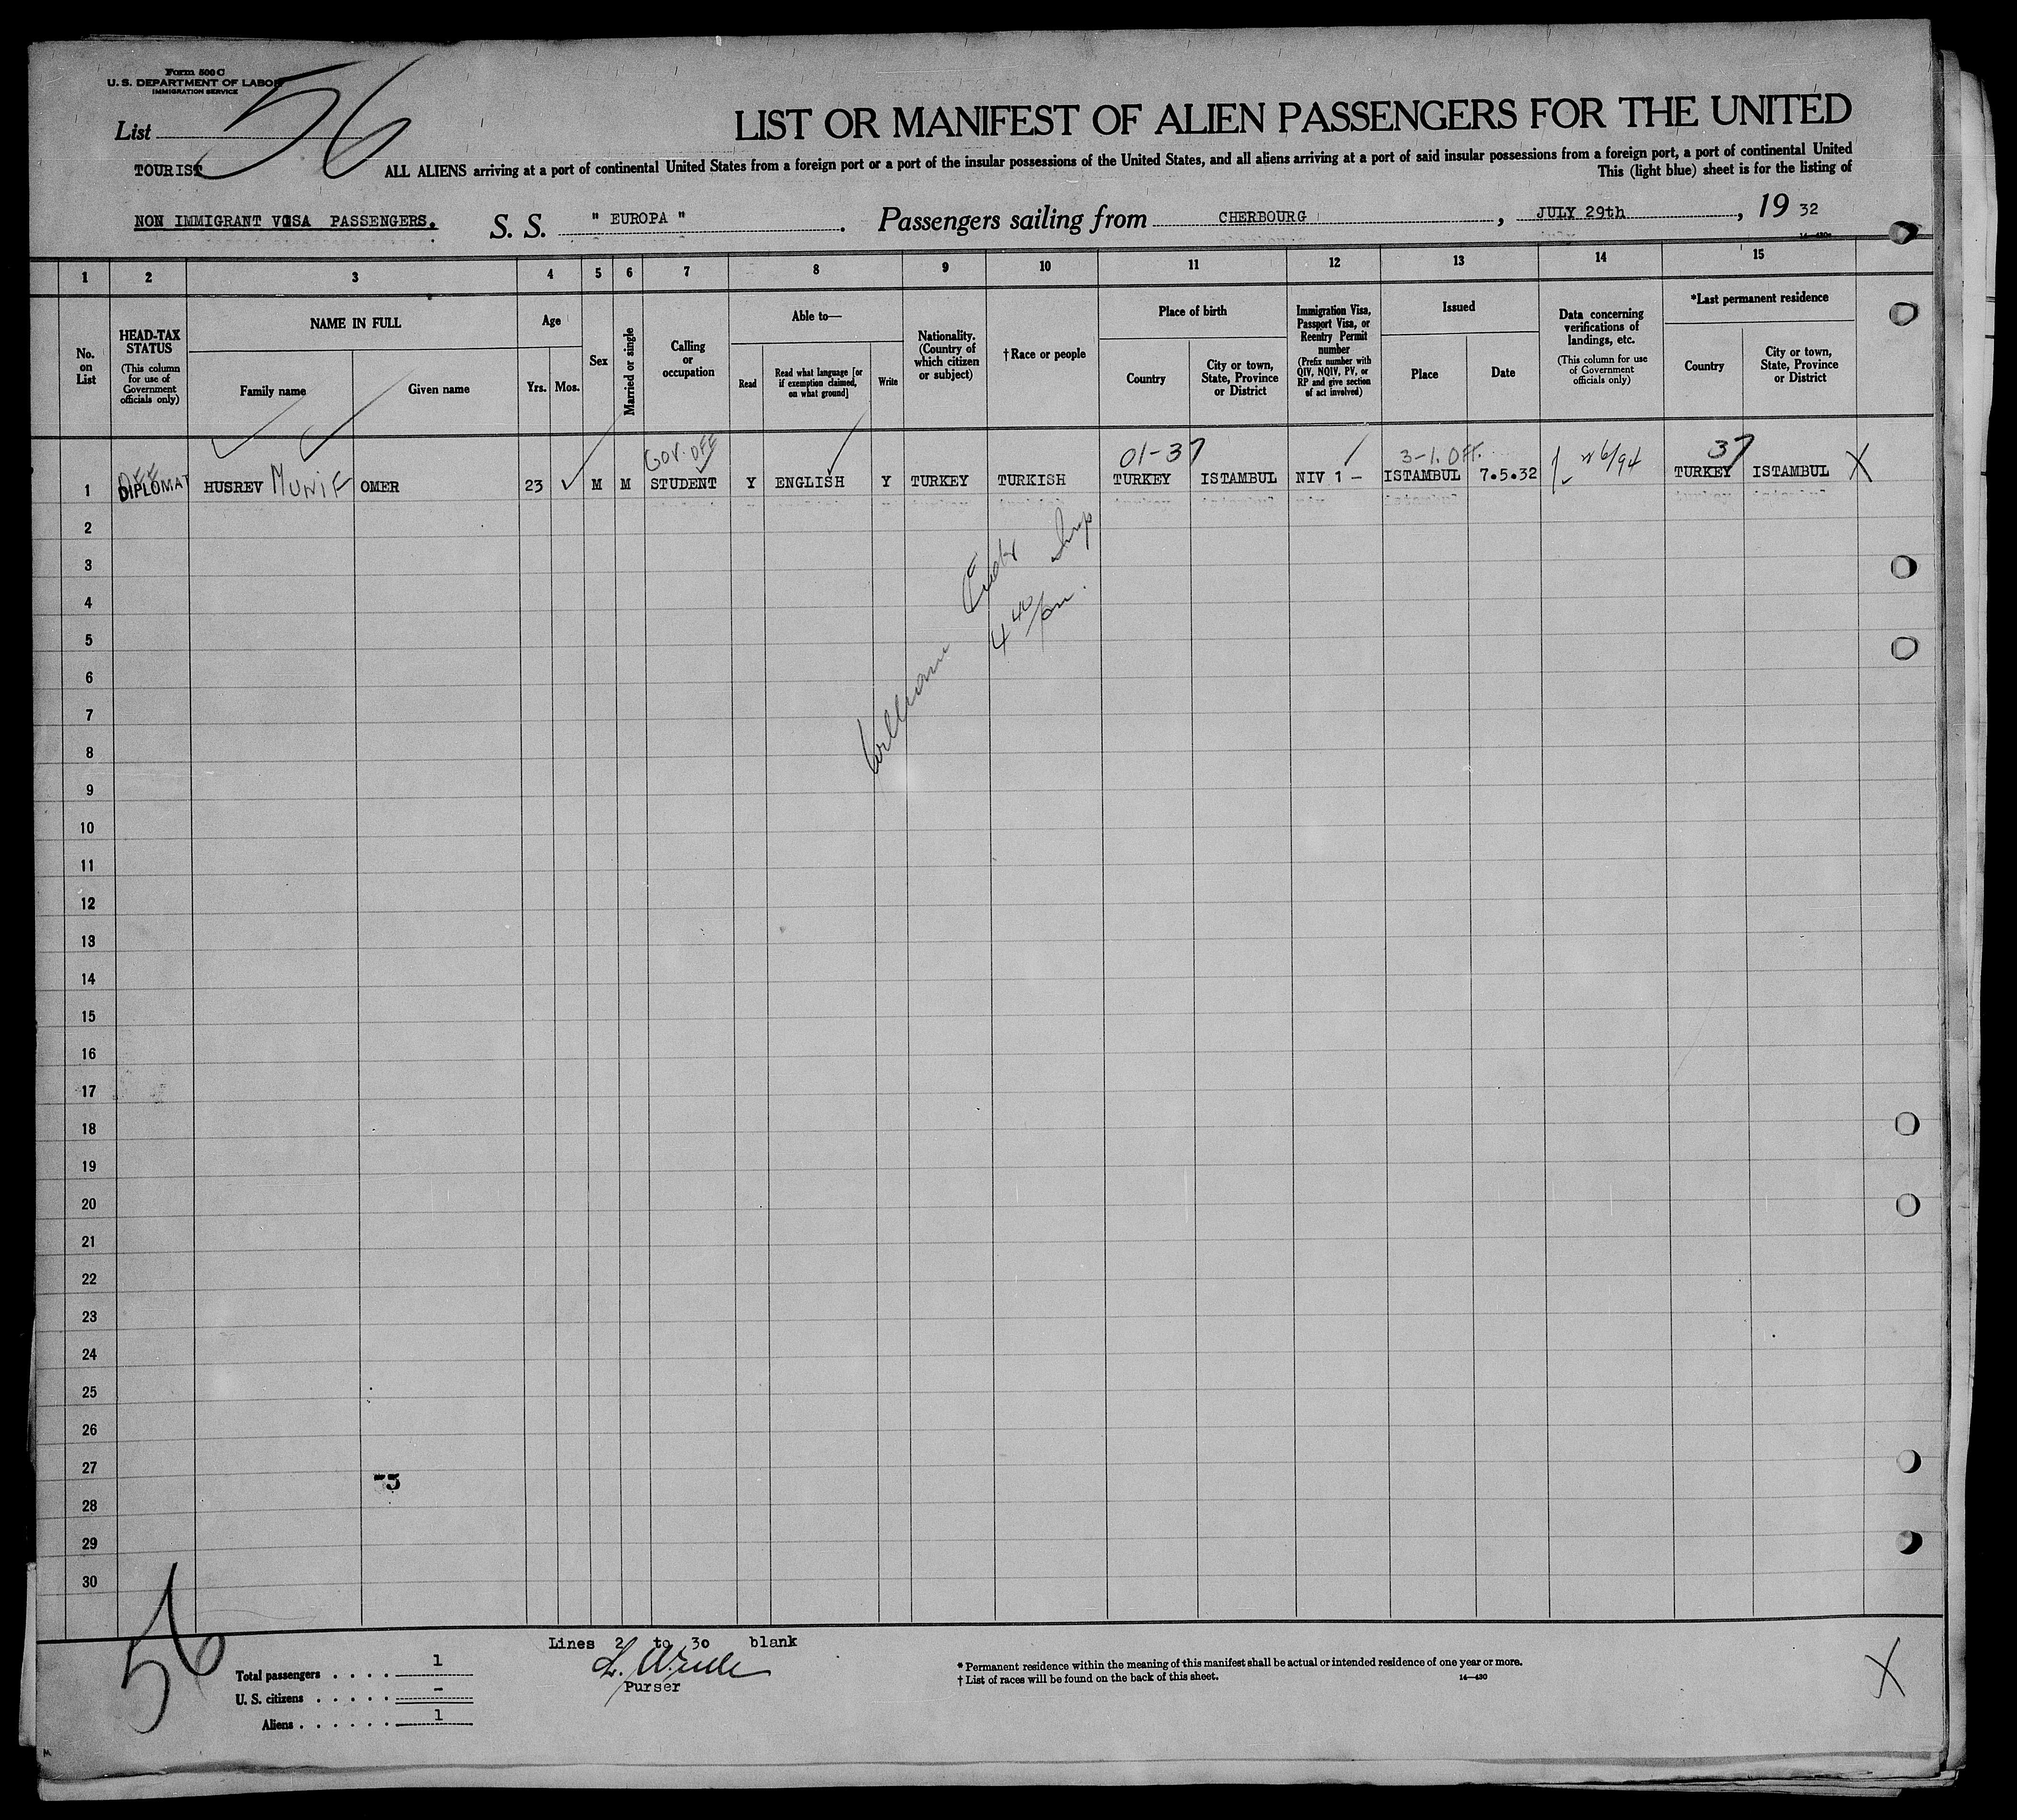 Form 500 C
U. S. DEPARTMENT OF LABOR
IMMIGRATION SERVICE
List 56
LIST OR MANIFEST OF ALIEN PASSENGERS FOR THE UNITED
TOURIST
ALL ALIENS arriving at a port of continental United States from a foreign port or a port of the insular possessions of the United States, and all aliens arriving at a port of said insular possessions from a foreign port, a port of continental United
This (light blue) sheet is for the listing of
NON IMMIGRANT VISA PASSENGERS. S. S. " EUROPA ". Passengers sailing from CHERBOURG, JULY 29th, 19 32
1 2 3 4 5 6 7 8 9 10 11 12 13 14 15
No. on List
HEAD-TAX STATUS (This column for use of Government officials only)
NAME IN FULL
Family name
Given name
Age
Yrs.
Mos.
Sex
Married or single
Calling or occupation
Able to—
Read
Read what language [or if exemption claimed, on what ground]
Write
Nationality. (Country of which citizen or subject)
† Race or people
Place of birth
Country
City or town, State, Province or District
Immigration Visa, Passport Visa, or Reentry Permit number (Prefix number with QIV, NQIV, PV, or RP and give section of act involved)
Issued
Place
Date
Data concerning verifications of landings, etc. (This column for use of Government officials only)
*Last permanent residence
Country
City or town, State, Province or District
GOV. OFF 01-37 3-1. OFF. 37
1 DIPLOMAT HUSREV MUNIF OMER 23 M M STUDENT Y ENGLISH Y TURKEY TURKISH TURKEY ISTAMBUL NIV 1 - ISTAMBUL 7.5.32 TURKEY ISTAMBUL X
2
3
4
5
6
7
8
9
10
11
12
13
14
15
16
17
18
19
20
21
22
23
24
25
26
27
28
29
30
William
56
Lines 2 to 30 blank
Purser
Total passengers . . . . . 1
U. S. citizens . . . . . -
Aliens . . . . . . 1
* Permanent residence within the meaning of this manifest shall be actual or intended residence of one year or more.
† List of races will be found on the back of this sheet. 14—430
X